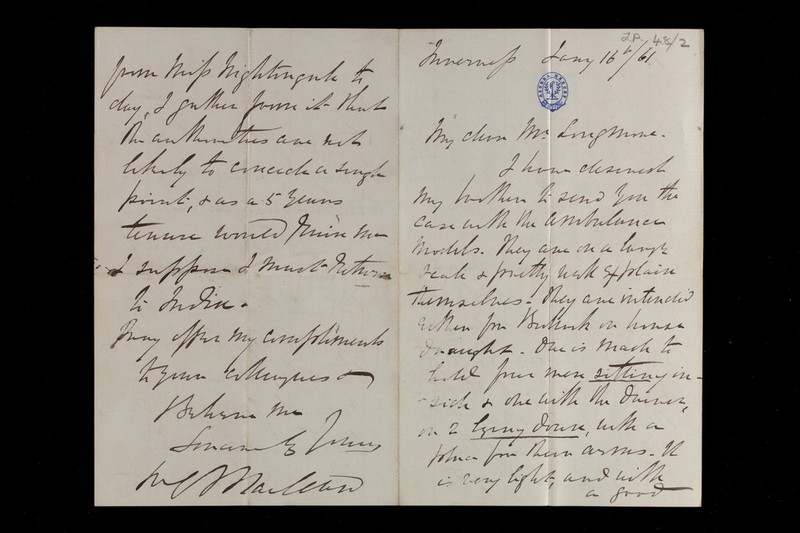 L.P. 48/2
Inverness Jany 16th/61
My dear Mr Longmore.
I have desired
my brother to send you the
case with the Ambulance
Models. They are on a large
scale & pretty well explain
themselves. They are intended
either for Bullock or horse
draught. One is made to
hold four men sitting in-
side & one with the Driver,
or 2 lying down, with a
place for their arms. It
is very light, and with
a good
from Miss Nightingale to
day, I gather from it that
the authorities are not
likely to concede a single
point, & as a 5 years
tenure would ruin me
I suppose I must return
to India.
Pray offer my compliments
to your colleagues &
Believe me
Sincerely Yours